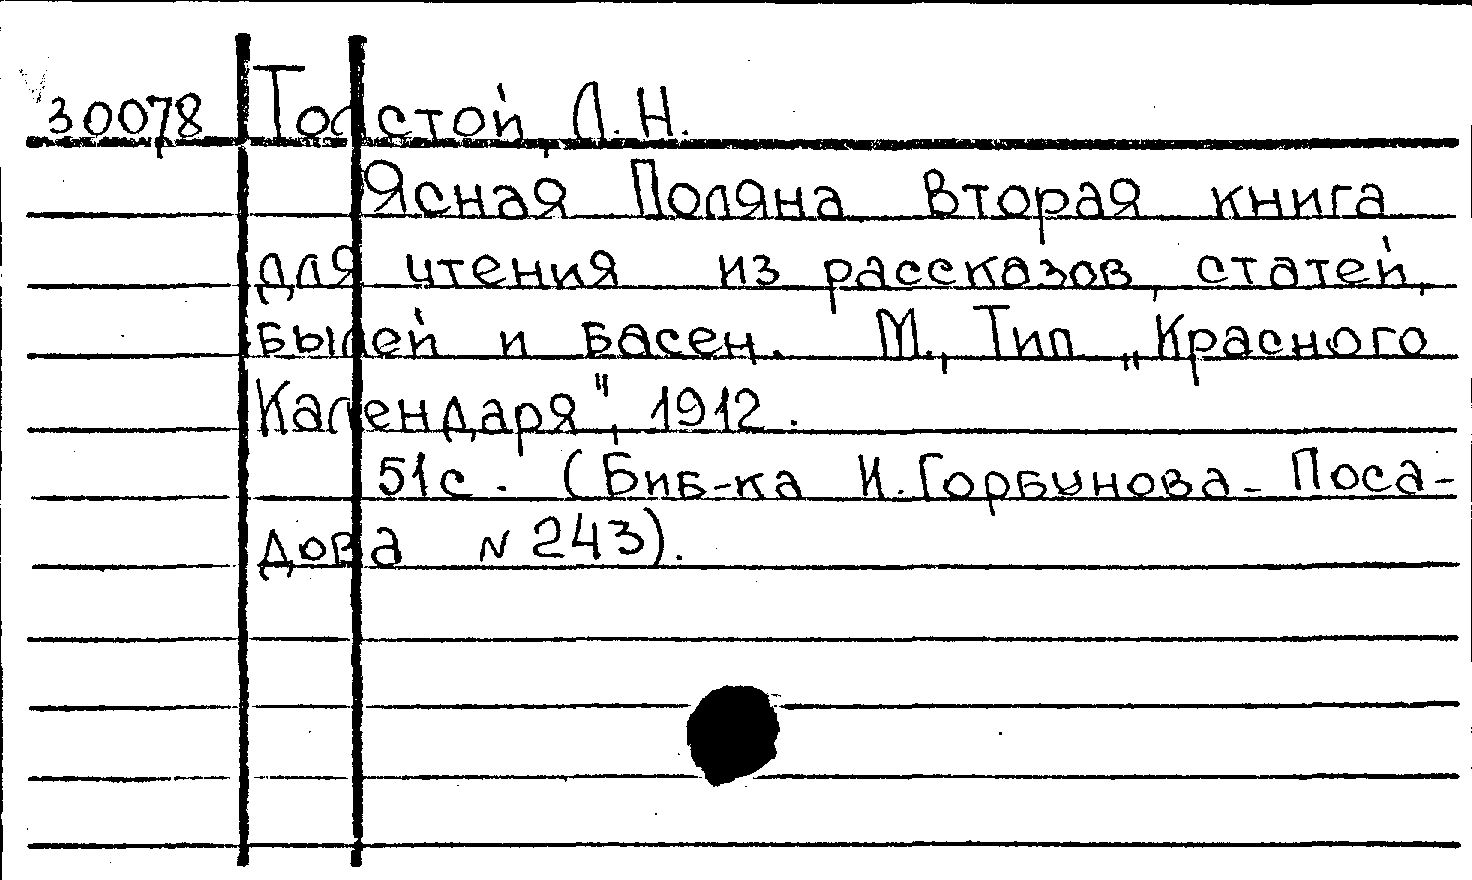 30078 Толстой, Л. Н.
Ясная Поляна Вторая книга
для чтения из рассказов, статей,
былей и басен. М., Тип „Красного
Календаря", 1912.
51с. (Биб-ка И. Горбунова-Поса-
дова N 243).